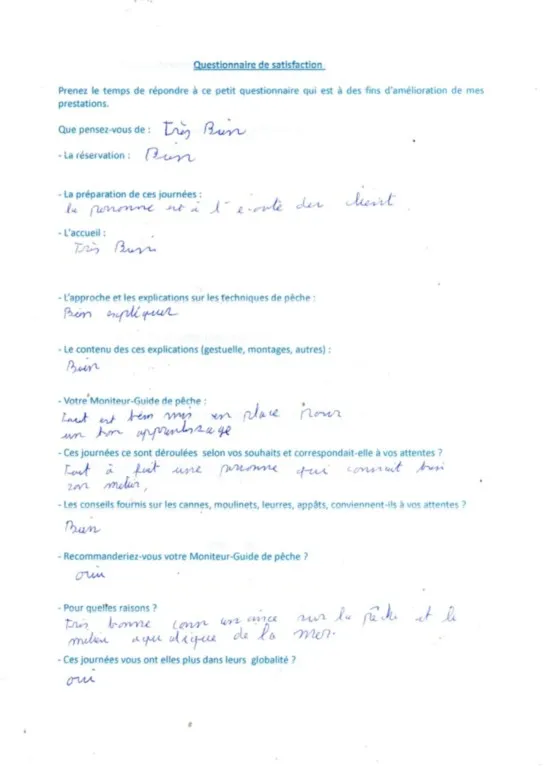 Questionnaire de satisfaction
Prenez le temps de répondre à ce petit questionnaire qui est à des fins d'amélioration de mes
prestations.
Que pensez-vous de : Très Bien
- La réservation : Bien
- La préparation de ces journées :
la personne est à l'ecoute des client
- L'accueil :
Très Bien
- L'approche et les explications sur les techniques de pêche :
Bien expliquer
- Le contenu des ces explications (gestuelle, montages, autres) :
Bien
- Votre Moniteur-Guide de pêche :
tout est bien mis en place pour
un bon apprentissage
- Ces journées ce sont déroulées selon vos souhaits et correspondait-elle à vos attentes ?
Tout à fait une personne qui connait bien
son metier,
- Les conseils fournis sur les cannes, moulinets, leurres, appâts, conviennent-ils à vos attentes ?
Bien
- Recommanderiez-vous votre Moniteur-Guide de pêche ?
oui
- Pour quelles raisons ?
très bonne sur la pêche et le
milieu de la mer.
- Ces journées vous ont elles plus dans leurs globalité ?
oui